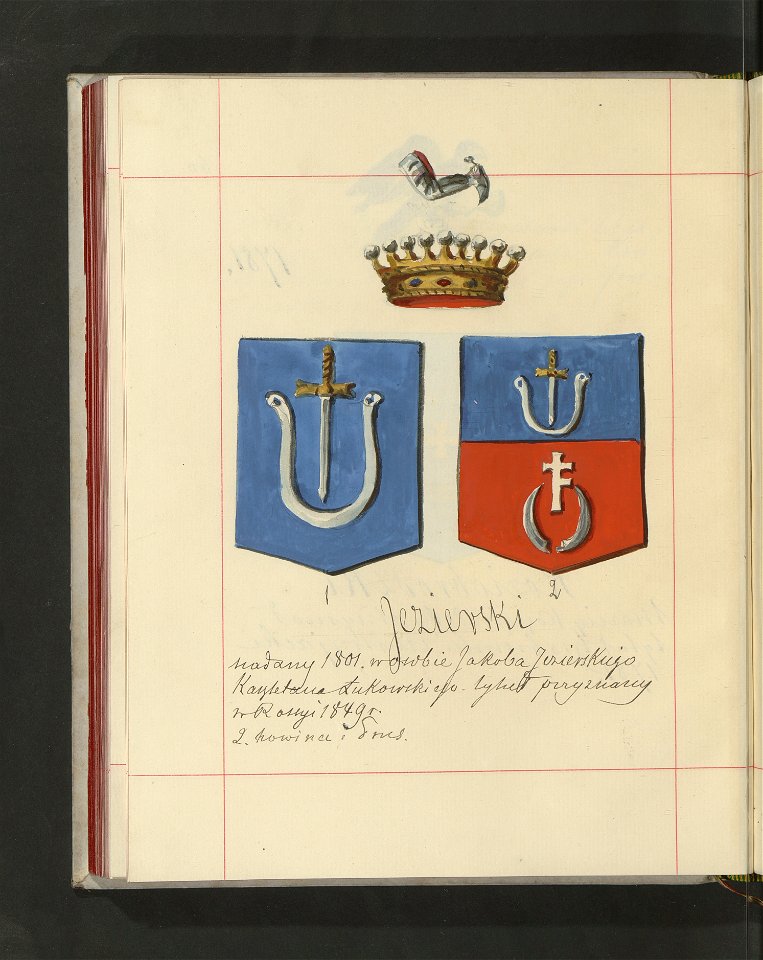 1781.
1
2
Jezierski
nadany 1801. w osobie Jakoba Jezierskiego
Kasztelana Łukowskiego. tytuł przyznany
w Rossyi 1849 r.
2. Nowina i